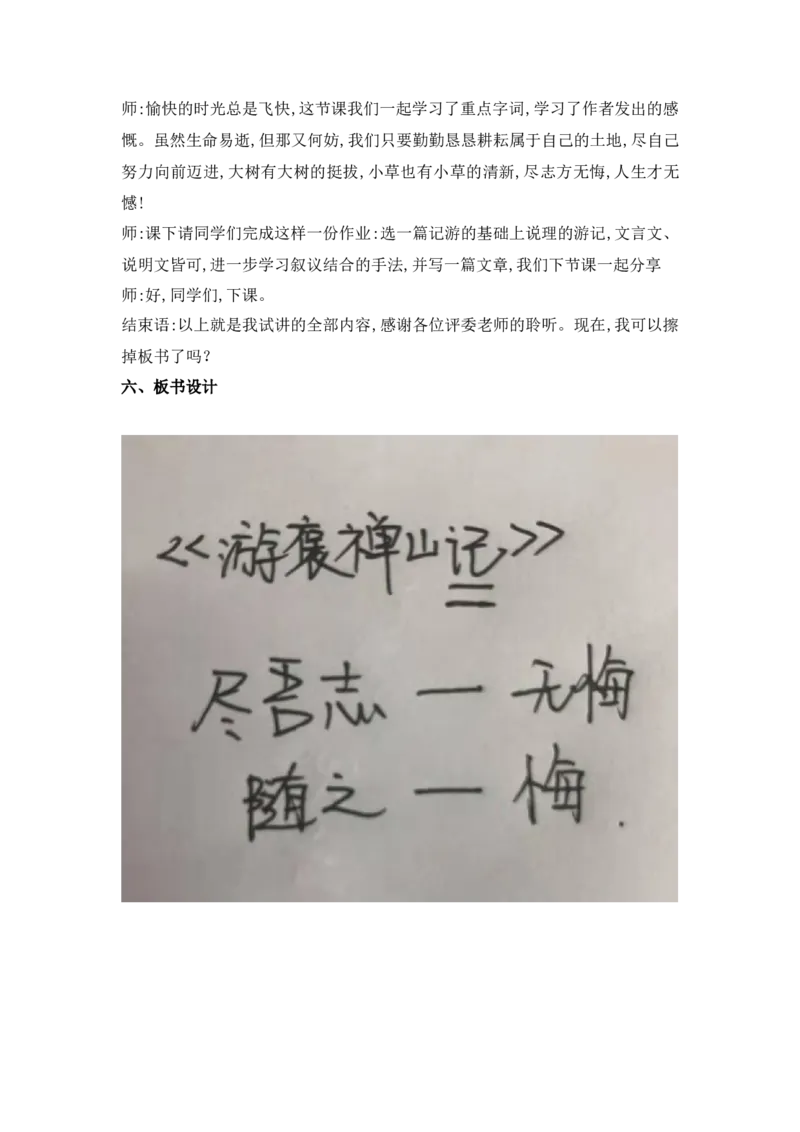 师:愉快的时光总是飞快,这节课我们一起学习了重点字词,学习了作者发出的感
慨。虽然生命易逝,但那又何妨,我们只要勤勤恳恳耕耘属于自己的土地,尽自己
努力向前迈进,大树有大树的挺拔,小草也有小草的清新,尽志方无悔,人生才无
憾!
师:课下请同学们完成这样一份作业:选一篇记游的基础上说理的游记,文言文、
说明文皆可,进一步学习叙议结合的手法,并写一篇文章,我们下节课一起分享
师:好,同学们,下课。
结束语:以上就是我试讲的全部内容,感谢各位评委老师的聆听。现在,我可以擦
掉板书了吗?
六、板书设计
<<游褒禅山记>>
尽吾志 — 无悔
随之 — 悔.